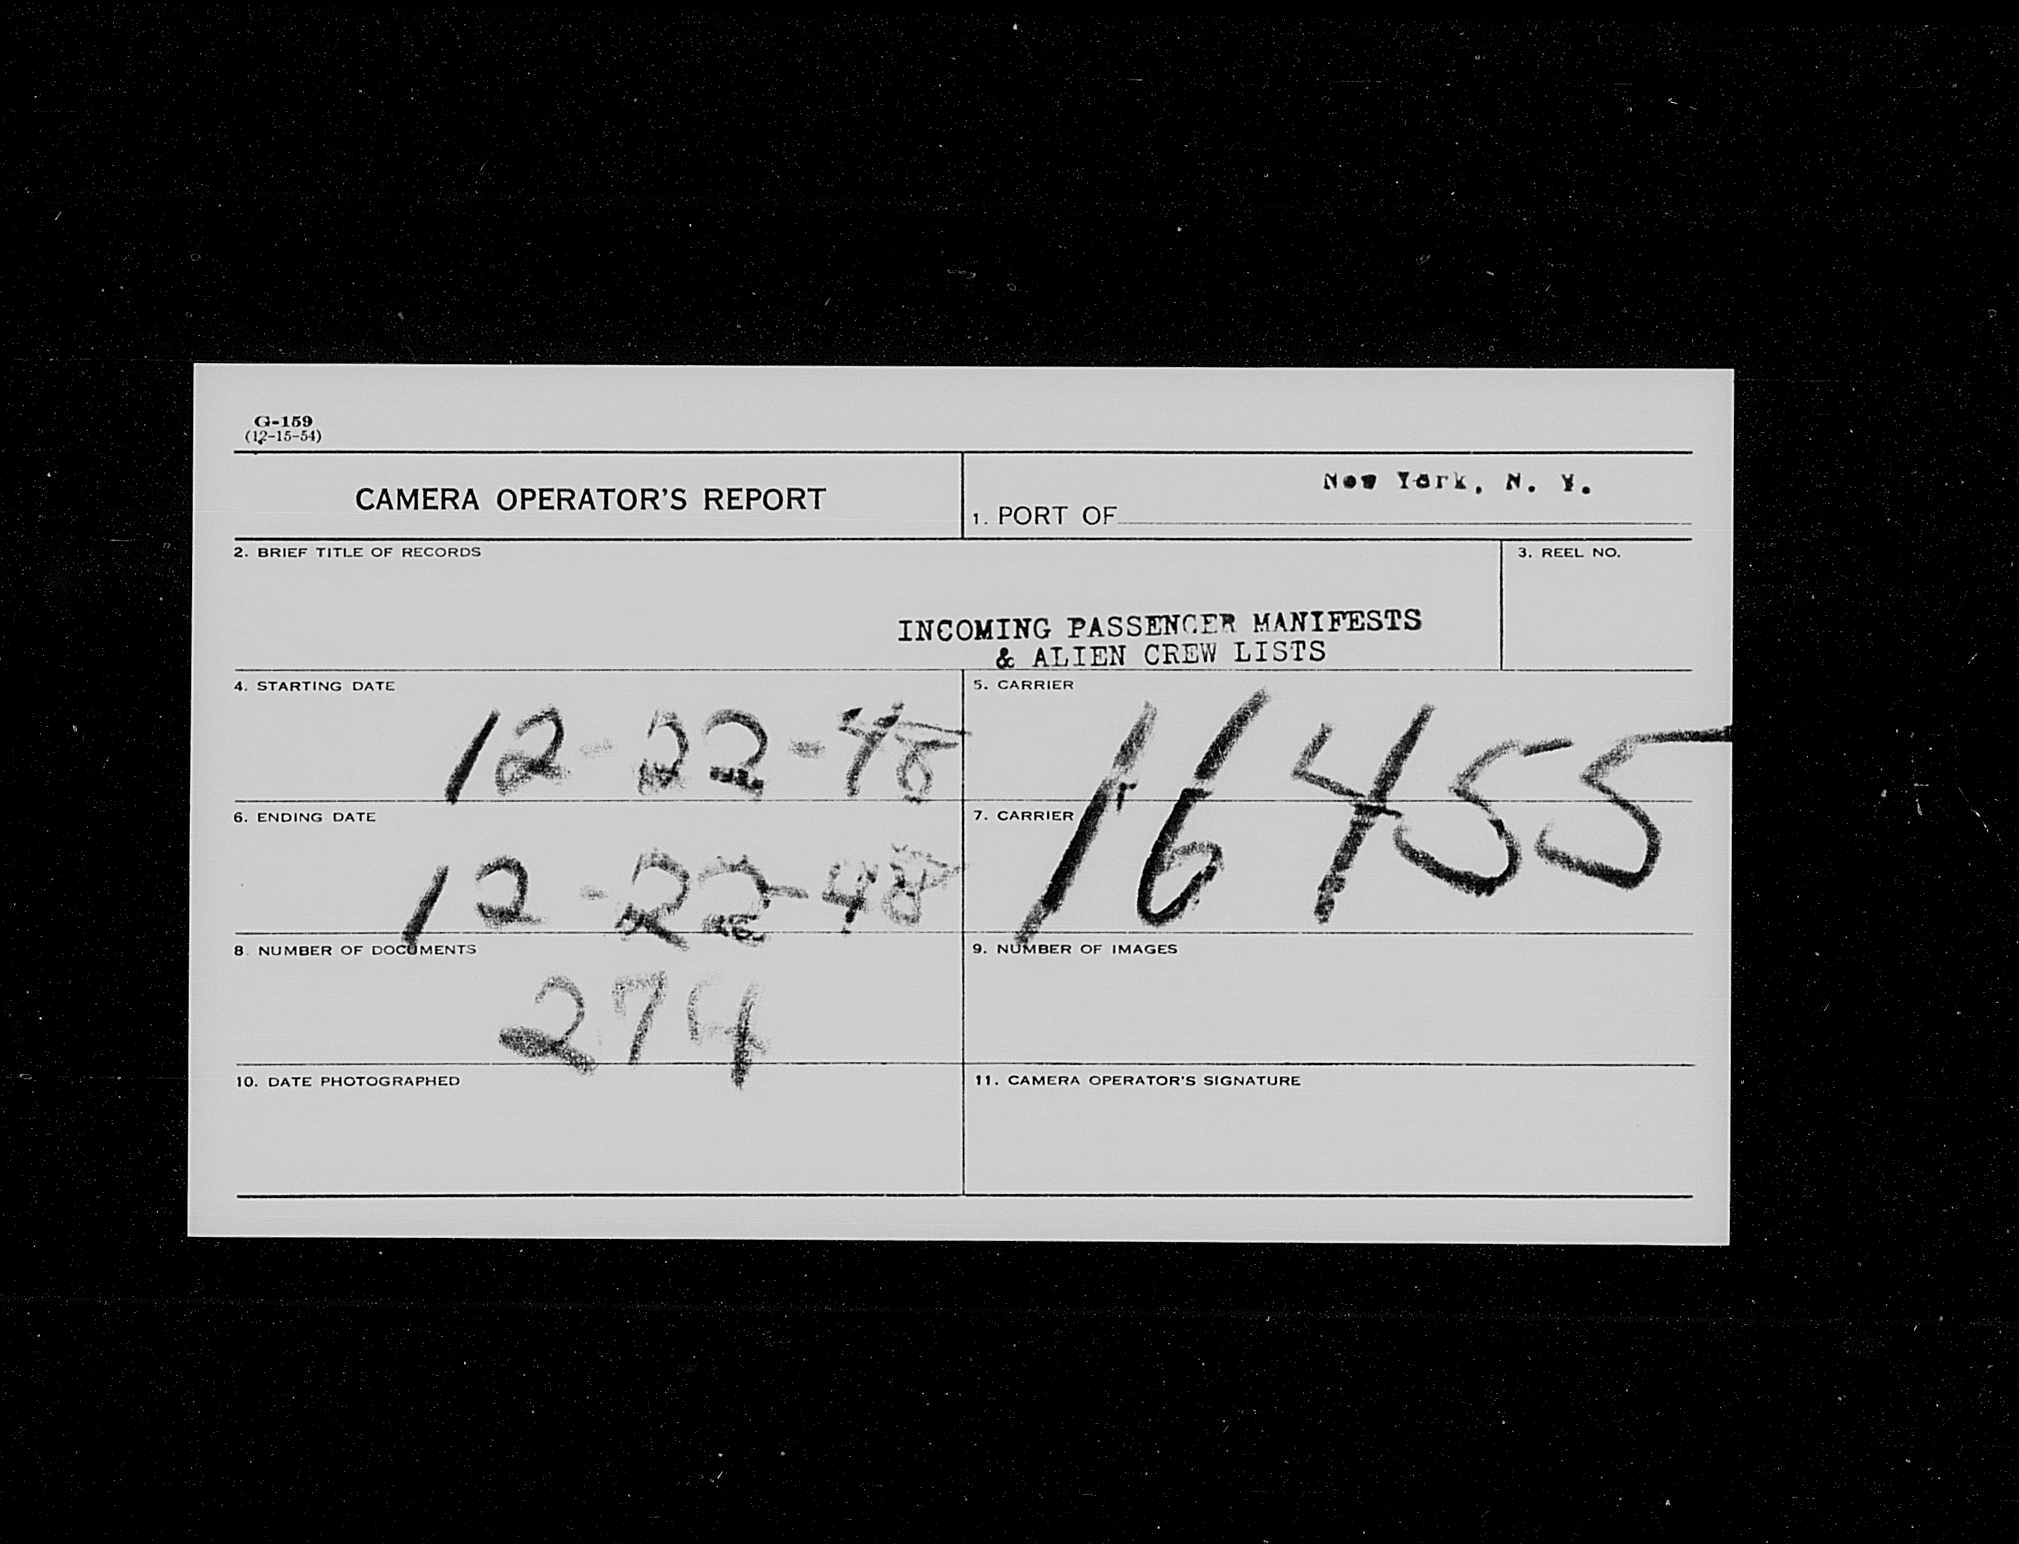 G-159
(12-15-54)
CAMERA OPERATOR'S REPORT
New York, N. Y.
1. PORT OF
2. BRIEF TITLE OF RECORDS
3. REEL NO.
INCOMING PASSENGER MANIFESTS
& ALIEN CREW LISTS
4. STARTING DATE
12-22-48
5. CARRIER
16455
6. ENDING DATE
12-22-48
7. CARRIER
8. NUMBER OF DOCUMENTS
274
9. NUMBER OF IMAGES
10. DATE PHOTOGRAPHED
11. CAMERA OPERATOR'S SIGNATURE